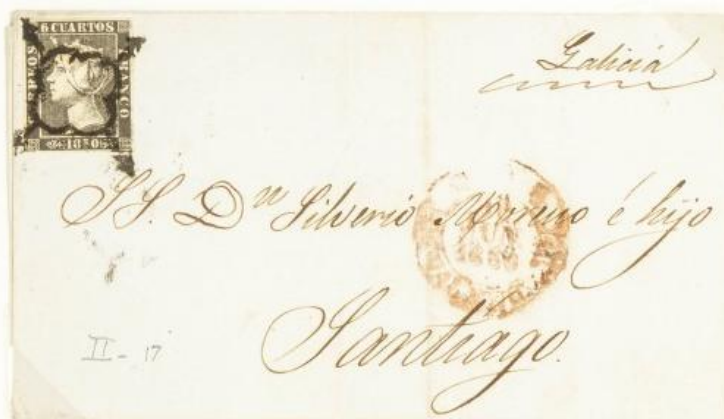 6 CUARTOS
CORREOS
FRANCO
1850
Galicia
SS. Dn Silverio Moreno é hijo
Santiago.
II - 17